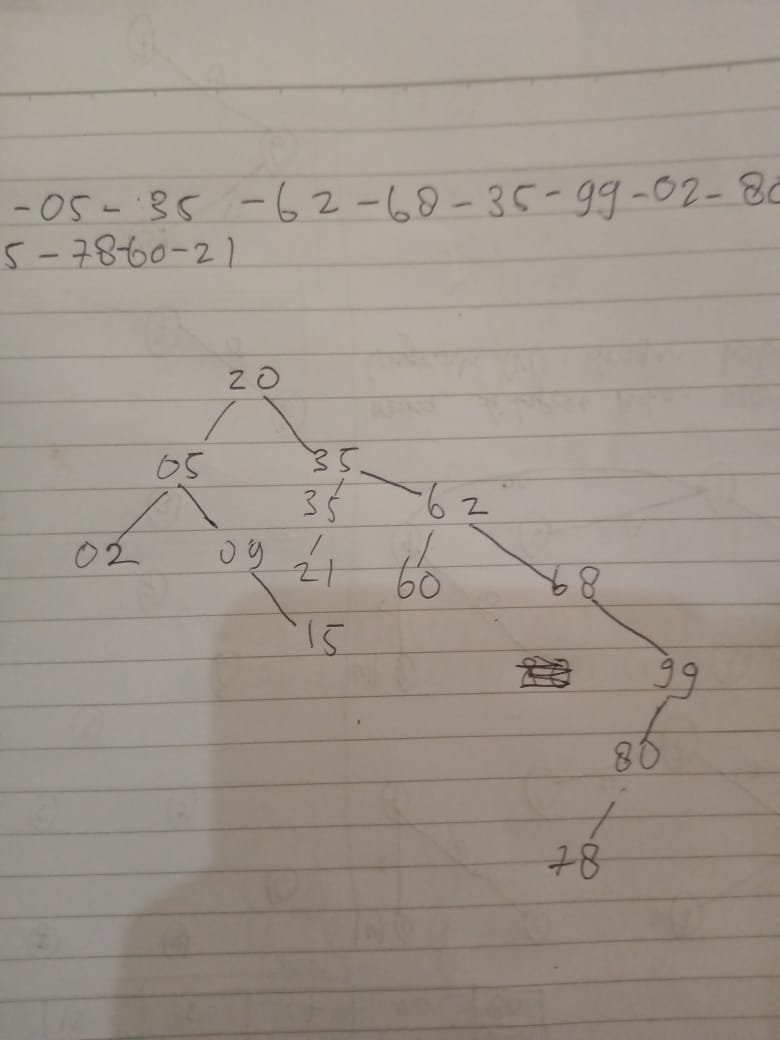 -05- 35 -62-68-35-99-02-80
5-78-60-21
20
05 35
35 62
02 09 21 60 68
15
99
80
78